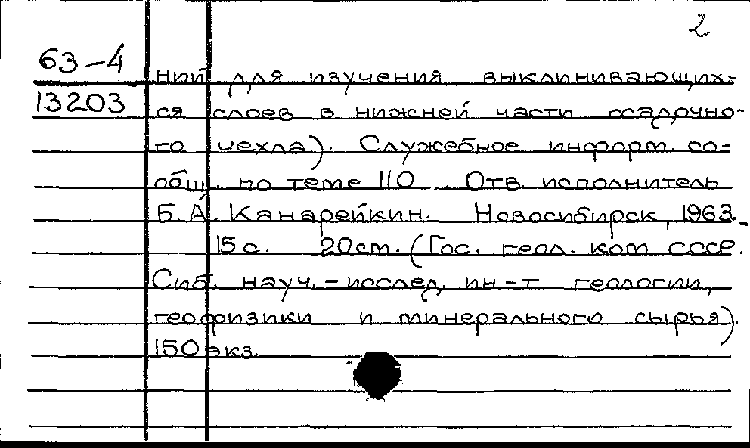 2
63-4
ний для изучения выклинивающих-
13203
ся слоев в нижней части осадочно-
го чехла). Служебное информ. со-
общ. по теме 110. Отв. исполнитель
Б.А. Канарейкин. Новосибирск, 1963.
15 с. 20 см. (Гос. геол. ком СССР.
Сиб. науч.-исслед. ин-т геологии,
геофизики и минерального сырья).
150 экз.